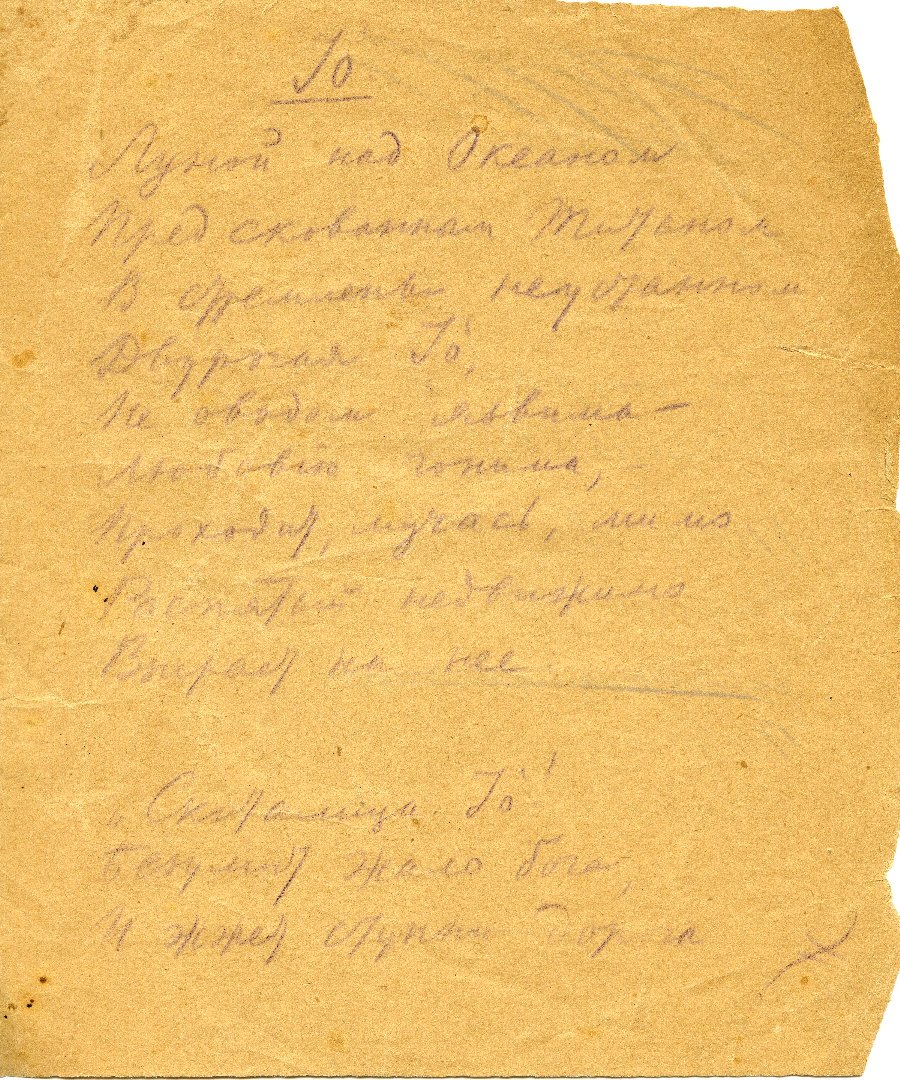 Iо́
Луной над Океаном
Пред скованным Титаном
В стремленьи неустанном
Двурогая Iо́,
Не оводом язвима –
Любовiю гонима, –
Проходит, мучась, мимо
Распятый недвижимо
Взирает на нее.
„Скиталица Iо́!
Безумит жало бога,
И жжет ступни дорога